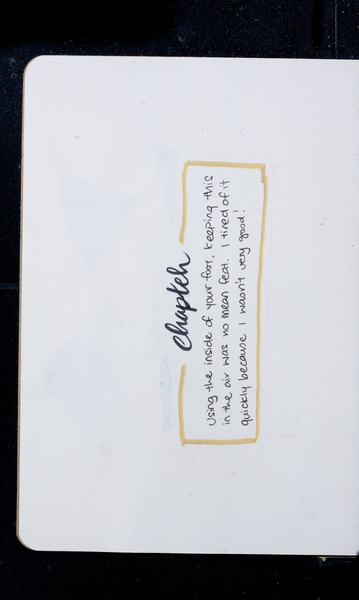 Chapteh
Using the inside of your foot, keeping this
in the air was no mean feat. I tired of it
quickly because I wasn't very good!